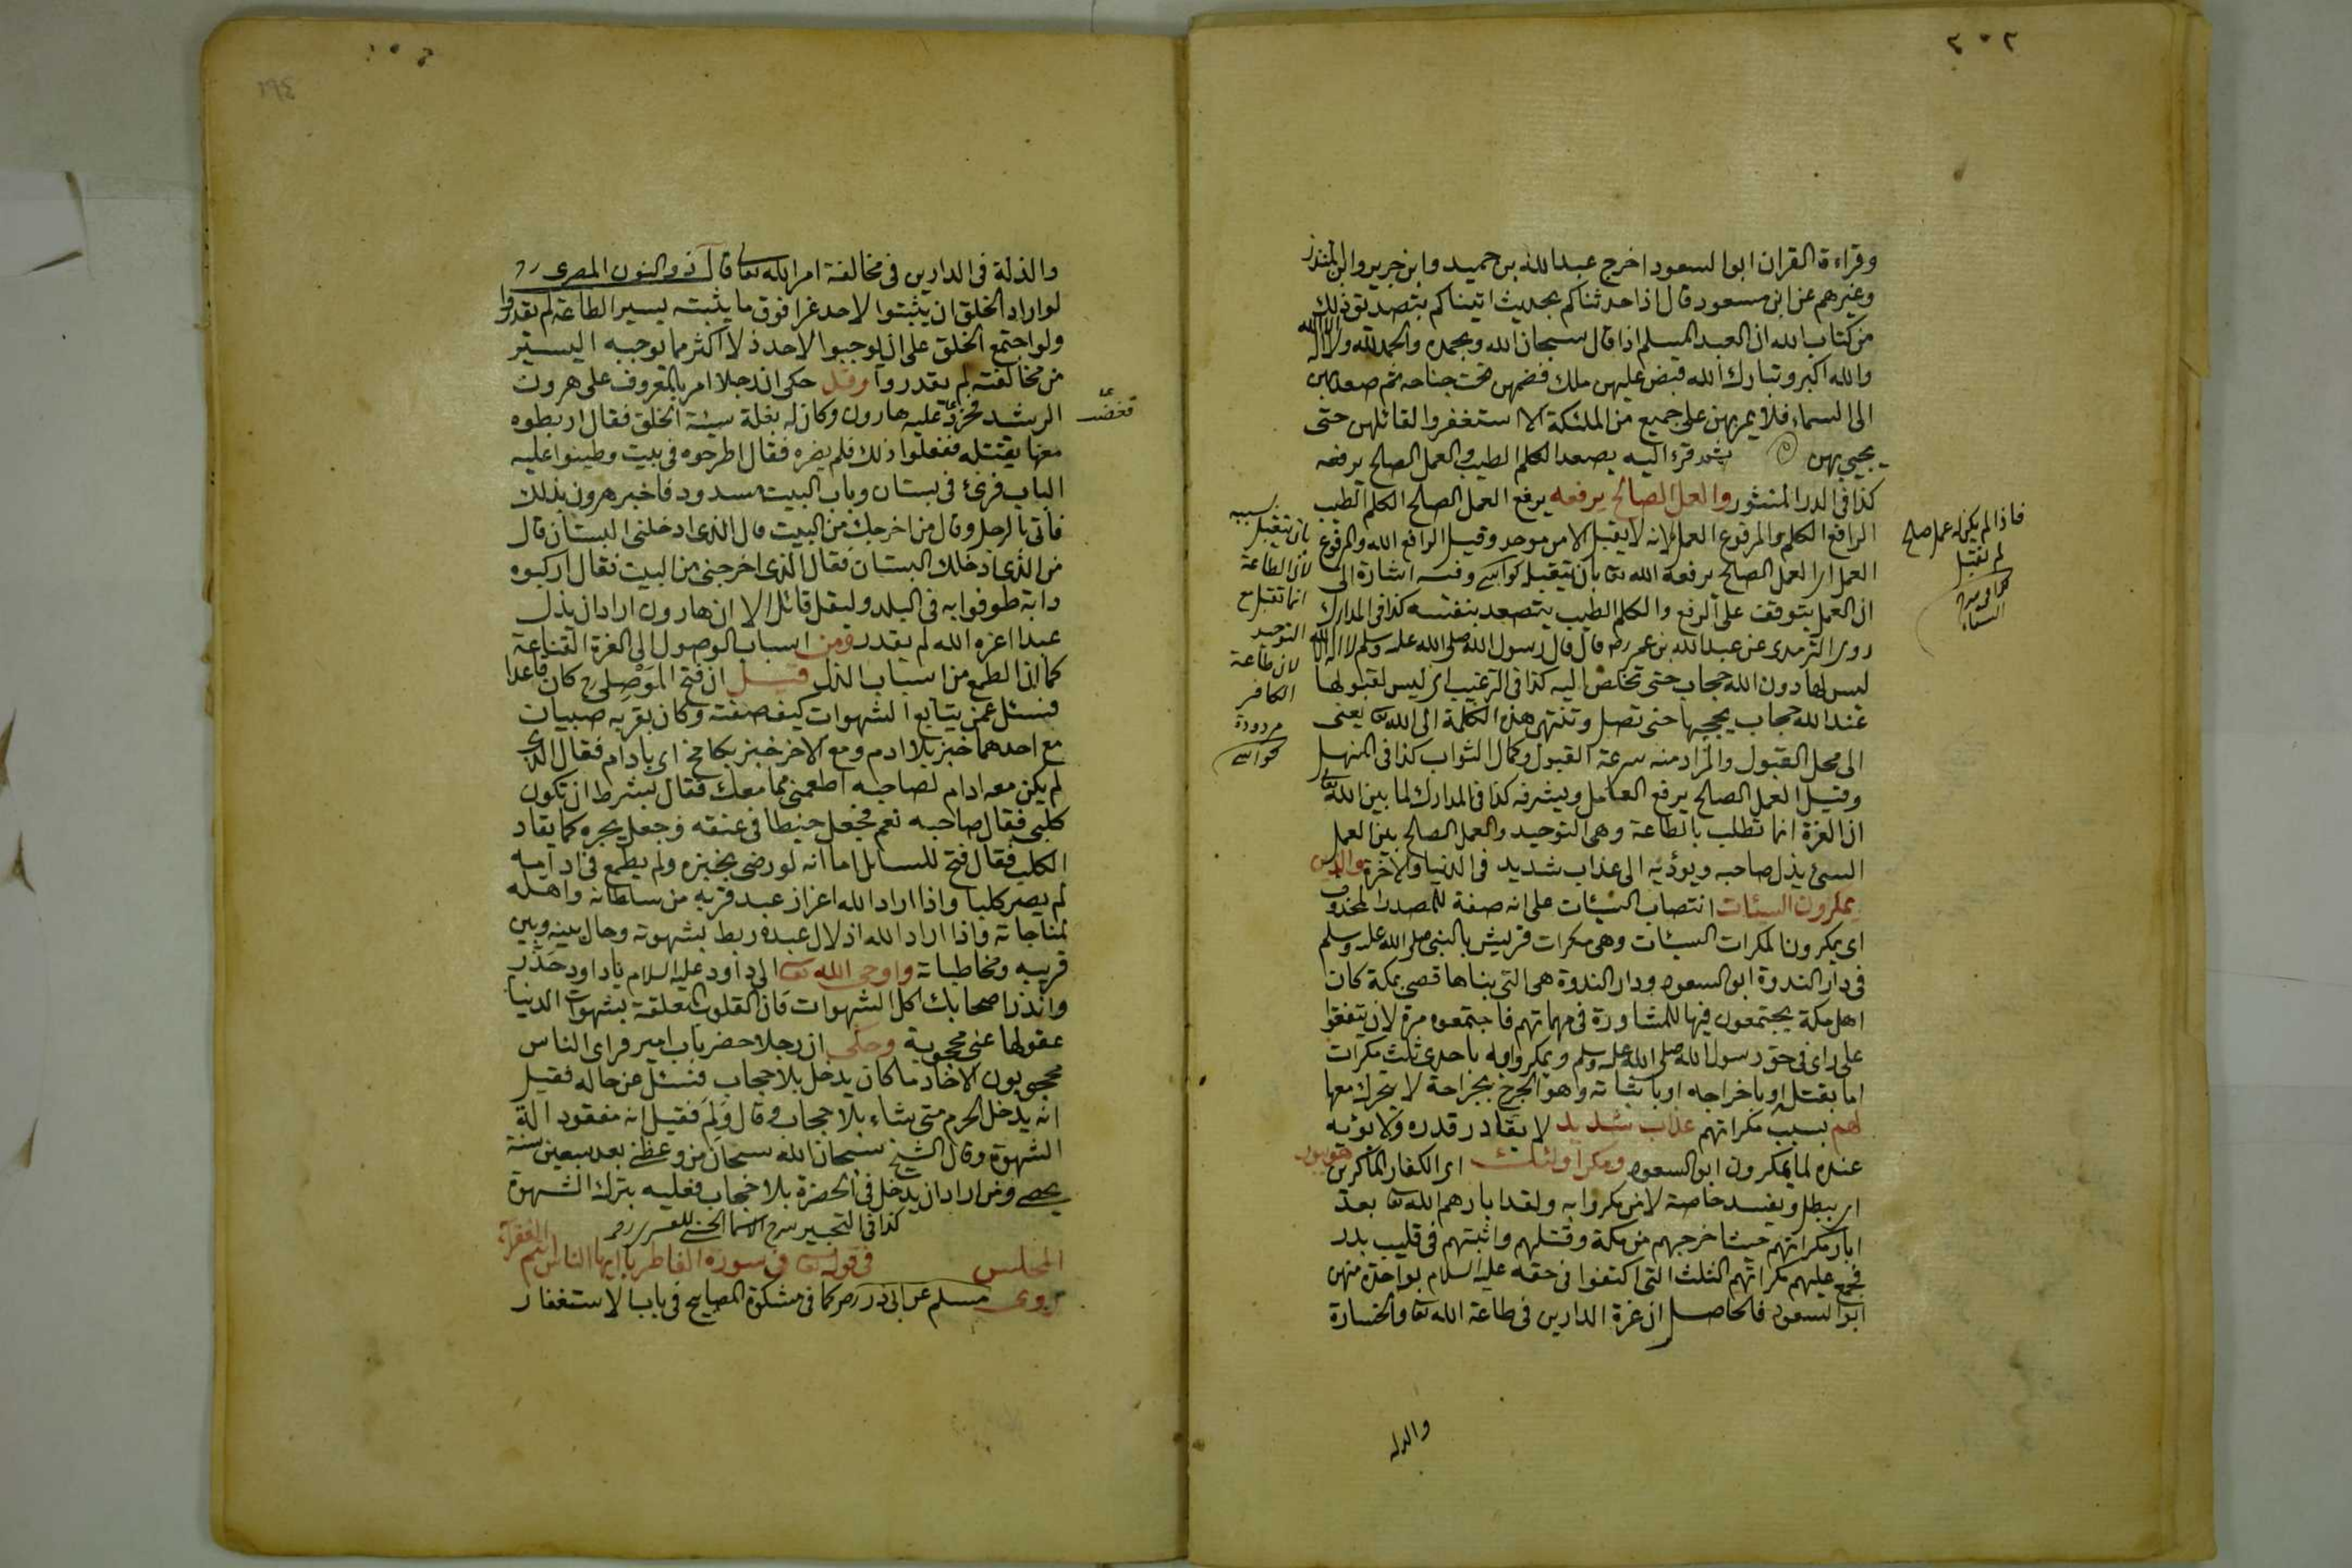 ٢٠٢
وقراءة القران ابوالسعود اخرج عبدالله بن حميد وابن جرير وابن المنذر
وغيرهم عن ابن مسعود قال اذا حدثناكم بحديث اتيناكم بتصديق ذلك
من كتاب الله ان العبد المسلم اذا قال سبحان الله وبحمده والحمد لله ولا اله الا الله
والله اكبر وتبارك الله قبض عليهن ملك فضمهن تحت جناحه ثم صعد بهن
الى السماء فلا يمر بهن على جميع من الملئكة الا استغفروا لقائلهن حتى
يجيئ بهن ثم قرء اليه يصعد الكلم الطيب والعمل الصالح يرفعه
كذا فى الدر المنثور والعمل الصالح يرفعه يرفع العمل الصالح الكلم الطيب
الرافع الكلم والمرفوع العمل لانه لا يقبل الا من موحد وقيل الرافع الله والمرفوع
العمل اى العمل الصالح يرفعه الله تعا بان يتقبله كواشى وفيه اشارة الى
ان العمل يتوقف على الرفع والكلم الطيب يتصعد بنفسه كذا فى المدارك
روى الترمدى عن عبدالله بن عمر رضه قال قال رسول الله صلى الله عليه وسلم لا اله الا الله
ليس لها دون الله حجاب حتى تخلص اليه كذا فى الترغيب اى ليس لقبولها
عند الله حجاب يحجبها حتى تصل وتنتهى هذه الكلمة الى الله تعا يعنى
الى محل القبول والمراد منه سرعة القبول وكمال الثواب كذا فى المنهل
وقيل العمل الصالح يرفع العامل ويشرفه كذا فى المدارك لما بين الله تعا
ان العزة انما تطلب بالطاعة وهى التوحيد والعمل الصالح بين العمل
السيئ يذل صاحبه ويؤديه الى عذاب شديد فى الدنيا والاخرة والذين
يمكرون السيئات انتصاب السيئات على انه صفة للمصدر المحذوف
اى يمكرون المكرات السيئات وهى مكرات قريش بالنبى صلى الله عليه وسلم
فى دار الندوة ابو السعود ودار الندوة هى التى بناها قصى بمكة كان
اهل مكة يجتمعون فيها للمشاورة فى مهماتهم فاجتمعوه مرة لان يتفقوا
على راى فى حق رسول الله صلى الله عليه وسلم ويمكروا به باحدى ثلث مكرات
اما بقتل او باخراجه او باثباته وهو الجرح بجراحة لا يتحرك معها
لهم بسبب مكراتهم عذاب شديد لا يقادر قدره ولا يوبه
عنده لما يمكرون ابو السعود ومكر اولئك اى الكفار الماكرين هو يبور
اى يبطل ويفسد خاصة لا من مكروا به ولقد ابارهم الله تعا بعد
ابار مكراتهم حيث اخرجهم من مكة وقتلهم واثبتهم فى قليب بدر
فجمع عليهم مكراتهم الثلث التى اكتفوا فى حقه عليه السلام بواحدة منهن
ابو السعود فالحاصل ان عزة الدارين فى طاعة الله تعا والخسارة
والذلة
فاذا لم يكن له عمل صالح
لم تقبل
بان يتقبل
لان الطاعة
انما تقبل مع
التوحيد
لان طاعة
الكافر
مردودة
كواشى
والذلة فى الدارين فى مخالفة امر الله تعا قال ذو النون المصرى رح
لو اراد الخلق ان يثبتوا لاحد عزا فوق ما يثبته يسير الطاعة لم يقدروا
ولو اجتمع الخلق على ان يوجبوا لاحد ذلا اكثر مما يوجبه اليسير
من مخالفته لم يقدروا وقد حكى ان رجلا امر بالمعروف على هرون
الرشد فحرد عليه هارون وكان له بغلة سيئة الخلق فقال اربطوه
معها يقتله ففعلوا ذلك فلم يضره فقال اطرحوه فى بيت وطينوا عليه
الباب فرئ فى بستان وباب البيت مسدود فاخبر هرون بذلك
فاتى بالرجل وقال من اخرجك من البيت قال الذى ادخلنى البستان قال
من الذى ادخلك البستان فقال الذى اخرجنى من البيت فقال اركبوه
دابة طوفوا به فى البلد وليقل قائل الا ان هارون اراد ان يذل
عبدا اعزه الله لم يقدر ومن اسباب الوصول الى العزة القناعة
كما ان الطمع من اسباب الذل قيل ان فتح الموصلى رح كان قاعدا
فسئل عمن يتابع الشهوات كيف صفته وكان بقربه صبيان
مع احدهما خبز بلا ادم ومع الاخر خبز بكامخ اى بادام فقال الذى
لم يكن معه ادام لصاحبه اطعمنى مما معك فقال بشرط ان تكون
كلبى فقال صاحبه نعم فجعل خيطا فى عنقه وجعل يجره كما يقاد
الكلب فقال فتح للسائل اما انه لو رضى بخبزه ولم يطمع فى ادامه
لم يصر كلبا واذا اراد الله اعزاز عبد قربه من سلطانه واهله
لمناجاته واذا اراد الله اذلال عبده ربط بشهوته وحال بينه وبين
قربه ومخاطباته واوحى الله تعا الى داود عليه السلام يا داود حذر
وانذر اصحابك اكل الشهوات فان القلوب المعلقة بشهوات الدنيا
عقولها عنى محجوبة وحكى ان رجلا حضر باب امير فراى الناس
محجوبون الا خادما كان يدخل بلا حجاب فسئل عن حاله فقيل
انه يدخل الحرم متى شاء بلا حجاب وقال ولم فقيل انه مفقود الة
الشهوة وقال الشيخ سبحان الله سبحان من وعظنى بعد سبعين سنة
بخصى ومن اراد ان يدخل فى الحضرة بلا حجاب فعليه بترك الشهوة
كذا فى التحبير شرح الاسماء الحسنى
المجلس فى قوله تعا فى سورة الفاطر يا ايها الناس انتم الفقراء
روى مسلم عن ابى ذر رضه كما فى مشكوة المصابيح فى باب الاستغفار